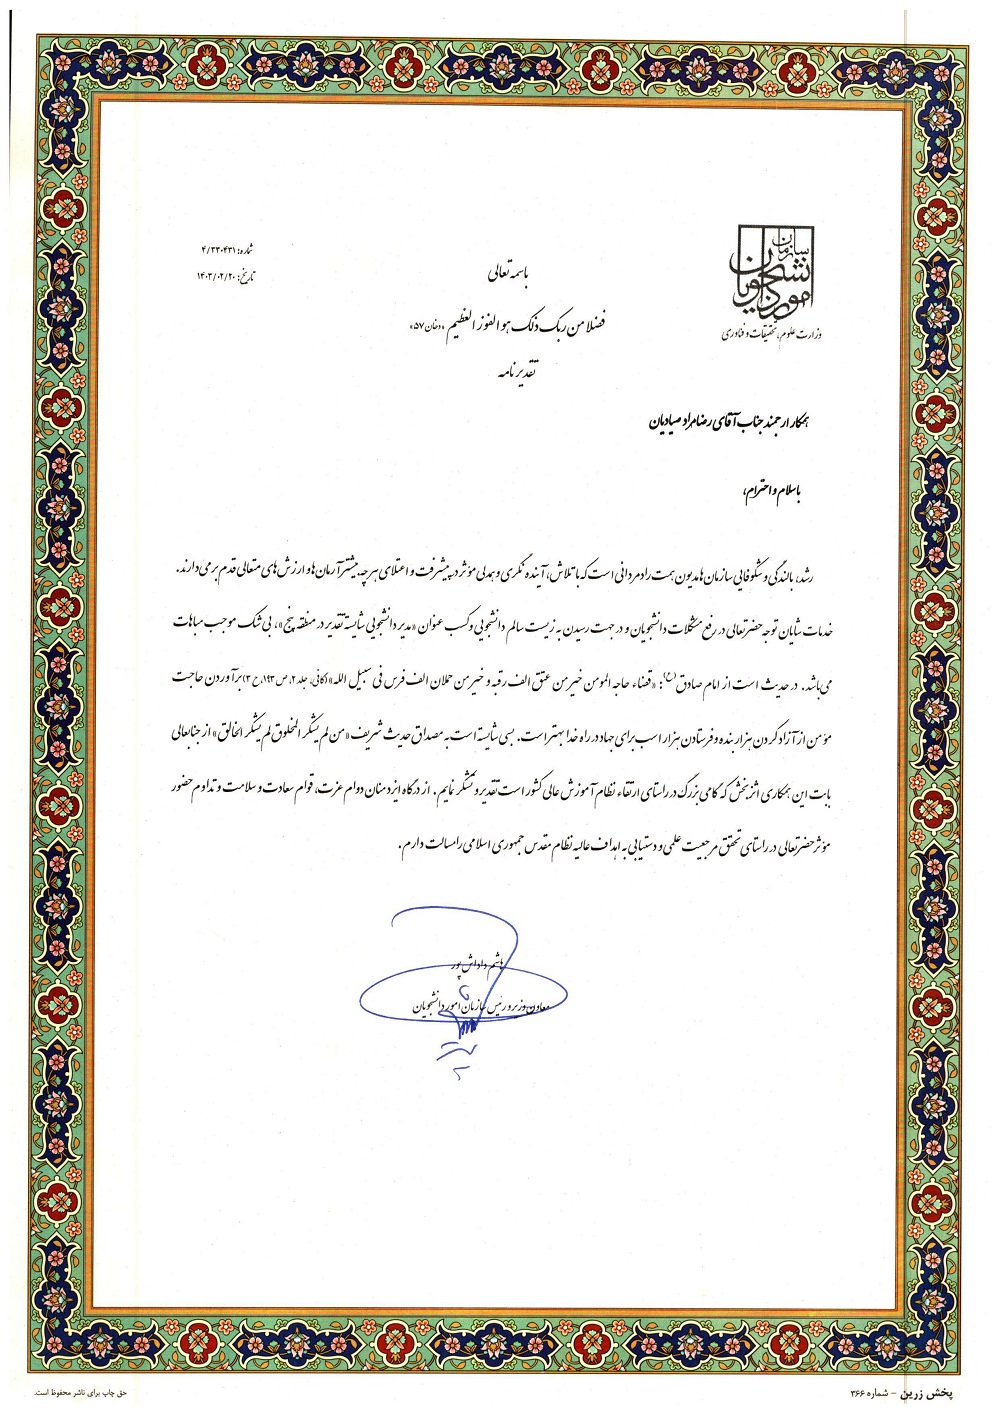 سازمان
امور دانشجویان
وزارت علوم، تحقیقات و فناوری
شماره: ۴/۳۳۰۴۳۱
تاریخ: ۱۴۰۳/۰۲/۲۰
باسمه تعالی
فضلا من ربک ذلک هو الفوز العظیم «دخان ۵۷»
تقدیرنامه
همکار ارجمند جناب آقای رضامراد صیادیان
با سلام و احترام،
رشد، بالندگی و شکوفایی سازمان ها مدیون همت رادمردانی است که با تلاش، آینده نگری و همدلی مؤثر در پیشرفت و اعتلای هرچه بیشتر آرمان ها و ارزش های متعالی قدم برمی دارند.
خدمات شایان توجه حضرتعالی در رفع مشکلات دانشجویان و در جهت رسیدن به زیست سالم دانشجویی و کسب عنوان «مدیر دانشجویی شایسته تقدیر در منطقه پنج»، بی شک موجب مباهات
می باشد. در حدیث است از امام صادق (ع): «قضاء حاجه المومن خیر من عتق الف رقبه و خیر من حملان الف فرس فی سبیل الله» (کافی، جلد ۲، ص ۱۹۳، ح ۳) برآوردن حاجت
مؤمن از آزاد کردن هزار بنده و فرستادن هزار اسب برای جهاد در راه خدا بهتر است. بسی شایسته است به مصداق حدیث شریف «من لم یشکر المخلوق لم یشکر الخالق» از جنابعالی
بابت این همکاری اثربخش که گامی بزرگ در راستای ارتقاء نظام آموزش عالی کشور است تقدیر و تشکر نمایم. از درگاه ایزد منان دوام عزت، قوام سعادت و سلامت و تداوم حضور
مؤثر حضرتعالی در راستای تحقق مرجعیت علمی و دستیابی به اهداف عالیه نظام مقدس جمهوری اسلامی را مسالت دارم.
هاشم داداش پور
معاون وزیر و رئیس سازمان امور دانشجویان
پخش زرین - شماره ۳۶۶
حق چاپ برای ناشر محفوظ است.